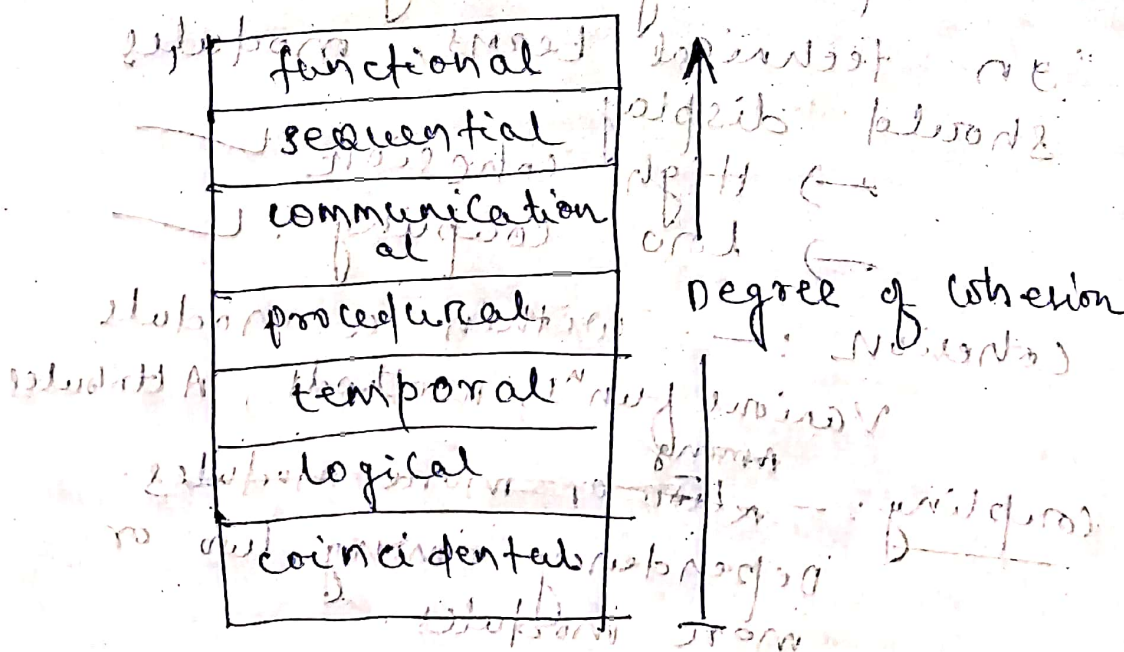 functional
sequential
communication
al
procedural
temporal
logical
coincidental
Degree of Cohesion